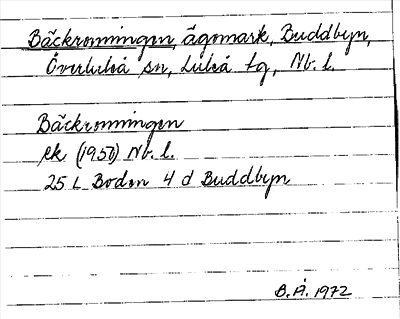 Bäckronningen, ägomark, Buddbyn,
Överluleå sn, Luleå tg, Nb. l.
Bäckronningen
ek (1950) Nb. l.
25 L Boden 4 d Buddbyn
B. Å. 1972